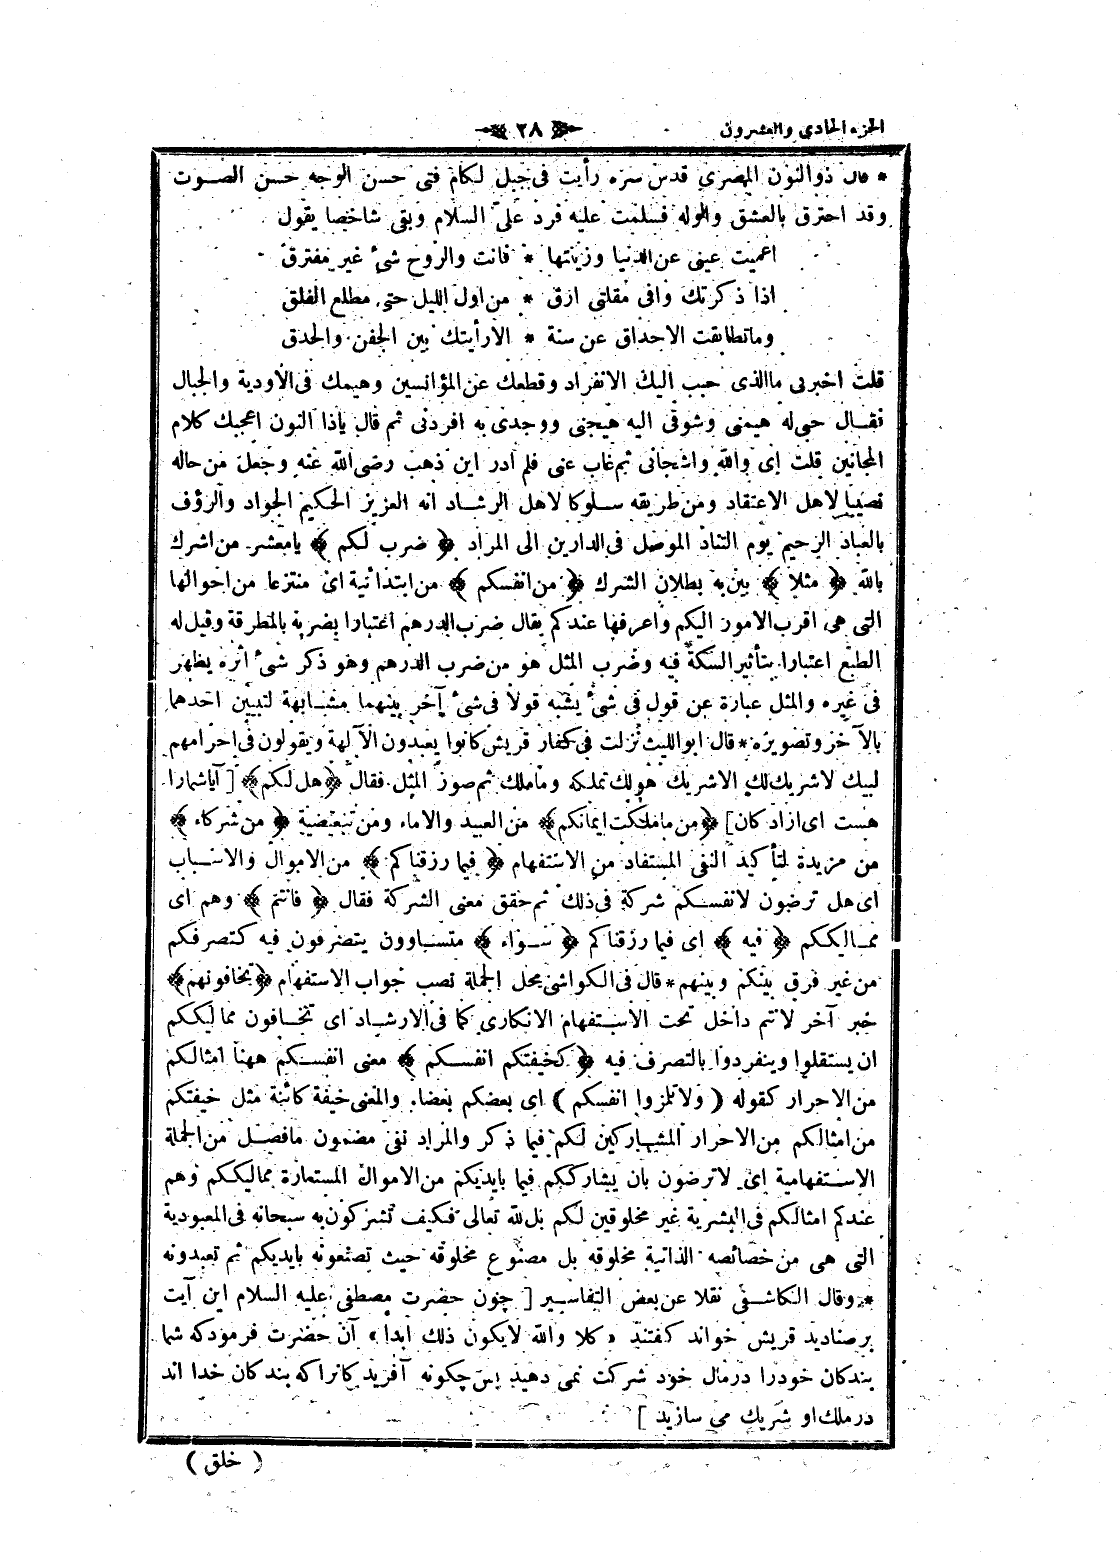 الجزء الحادى والعشرون
﴿ ٢٨ ﴾
* قال ذوالنون المصرى قدس سره رأيت فى جبل لكام فتى حسن الوجه حسن الصوت
وقد احترق بالعشق والوله فسلمت عليه فرد علىّ السلام وبقى شاخصا يقول
اعميت عينى عن الدنيا وزينتها * فانت والروح شىء غير مفترق
اذا ذكرتك وافى مقلتى ارق * من اول الليل حتى مطلع الفلق
وماتطابقت الاحداق عن سنة * الارأيتك بين الجفن والحدق
قلت اخبرنى ماالذى حبب اليك الانفراد وقطعك عن المؤانسين وهيمك فى الاودية والجبال
فقال حبى له هيمنى وشوقى اليه هيجنى ووجدى به افردنى ثم قال ياذا النون اعجبك كلام
المجانين قلت اى والله واشجانى ثم غاب عنى فلم ادر اين ذهب رضى الله عنه وجعل من حاله
نصيبا لاهل الاعتقاد ومن طريقه سلوكا لاهل الرشاد انه العزيز الحكيم الجواد والرؤف
بالعباد الرحيم يوم التناد الموصل فى الدارين الى المراد ﴿ ضرب لكم ﴾ يامعشر من اشرك
بالله ﴿ مثلا ﴾ بين به بطلان الشرك ﴿ من انفسكم ﴾ من ابتدائية اى منتزعا من احوالها
التى هى اقرب الامور اليكم واعرفها عندكم يقال ضرب الدرهم اعتبارا بضربه بالمطرقة وقيل له
الطبع اعتبارا بتأثير السكة فيه وضرب المثل هو من ضرب الدرهم وهو ذكر شىء اثره يظهر
فى غيره والمثل عبارة عن قول فى شىء يشبه قولا فى شىء آخر بينهما مشابهة لتبيين احدهما
بالآخر وتصويره * قال ابوالليث نزلت فى كفار قريش كانوا يعبدون الآلهة ويقولون فى احرامهم
لبيك لاشريك لك الاشريك هولك تملكه وماملك ثم صور المثل فقال ﴿هل لكم﴾ [ آياشمارا
هست اى ازاد كان] ﴿من ماملكت ايمانكم﴾ من العبيد والاماء ومن تبعيضية ﴿ من شركاء ﴾
من مزيدة لتأكيد النفى المستفاد من الاستفهام ﴿ فيما رزقناكم ﴾ من الاموال والاسباب
اى هل ترضون لانفسكم شركة فى ذلك ثم حقق معنى الشركة فقال ﴿ فانتم ﴾ وهم اى
مماليككم ﴿ فيه ﴾ اى فيما رزقناكم ﴿ سواء ﴾ متساوون يتصرفون فيه كتصرفكم
من غير فرق بينكم وبينهم * قال فى الكواشى محل الجملة نصب جواب الاستفهام ﴿تخافونهم﴾
خبر آخر لانتم داخل تحت الاستفهام الانكارى كما فى الارشاد اى تخافون مماليككم
ان يستقلوا وينفردوا بالتصرف فيه ﴿ كخيفتكم انفسكم ﴾ معنى انفسكم ههنا امثالكم
من الاحرار كقوله ( ولاتلمزوا انفسكم ) اى بعضكم بعضا. والمعنى خيفة كائنة مثل خيفتكم
من امثالكم من الاحرار المشاركين لكم فيما ذكر والمراد نفى مضمون مافصل من الجملة
الاستفهامية اى لاترضون بان يشارككم فيما بايديكم من الاموال المستعارة مماليككم وهم
عندكم امثالكم فى البشرية غير مخلوقين لكم بل لله تعالى فكيف تشركون به سبحانه فى المعبودية
التى هى من خصائصه الذاتية مخلوقه بل مصنوع مخلوقه حيث تصنعونه بايديكم ثم تعبدونه
* وقال الكاشفى نقلا عن بعض التفاسير [ چون حضرت مصطفى عليه السلام اين آيت
برصناديد قريش خواند كفتند «كلا والله لايكون ذلك ابدا» آن حضرت فرمودكه شما
بندكان خودرا درمال خود شركت نمى دهيد پس چكونه آفريدكانراكه بندكان خدا اند
درملك او شريك مى سازيد ]
( خلق )